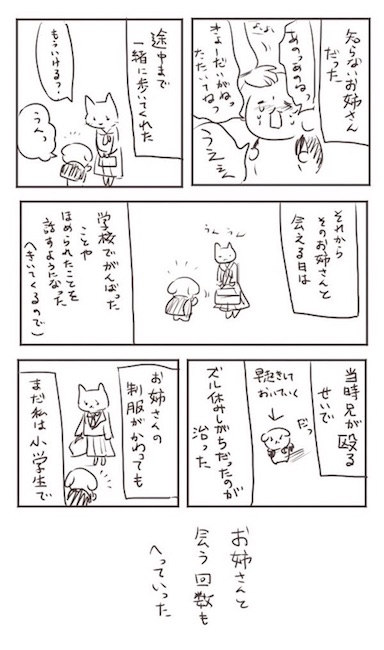 知らないお姉さん
だった
あのっあのねっ
きょーだいがねっ
たたいてねっ
うええん
途中まで
一緒に歩いてくれた
もういける?
うんっ
それから
そのお姉さんと
会える日は
うんうん
学校でがんばった
ことや
ほめられたことを
話すようになった
(きいてくるので)
当時兄が殴る
せいで
だっ
早起きして
おいていく
ズル休みしがちだったのが
治った
お姉さんの
制服がかわっても
まだ私は小学生で
お姉さんと
会う回数も
へっていった